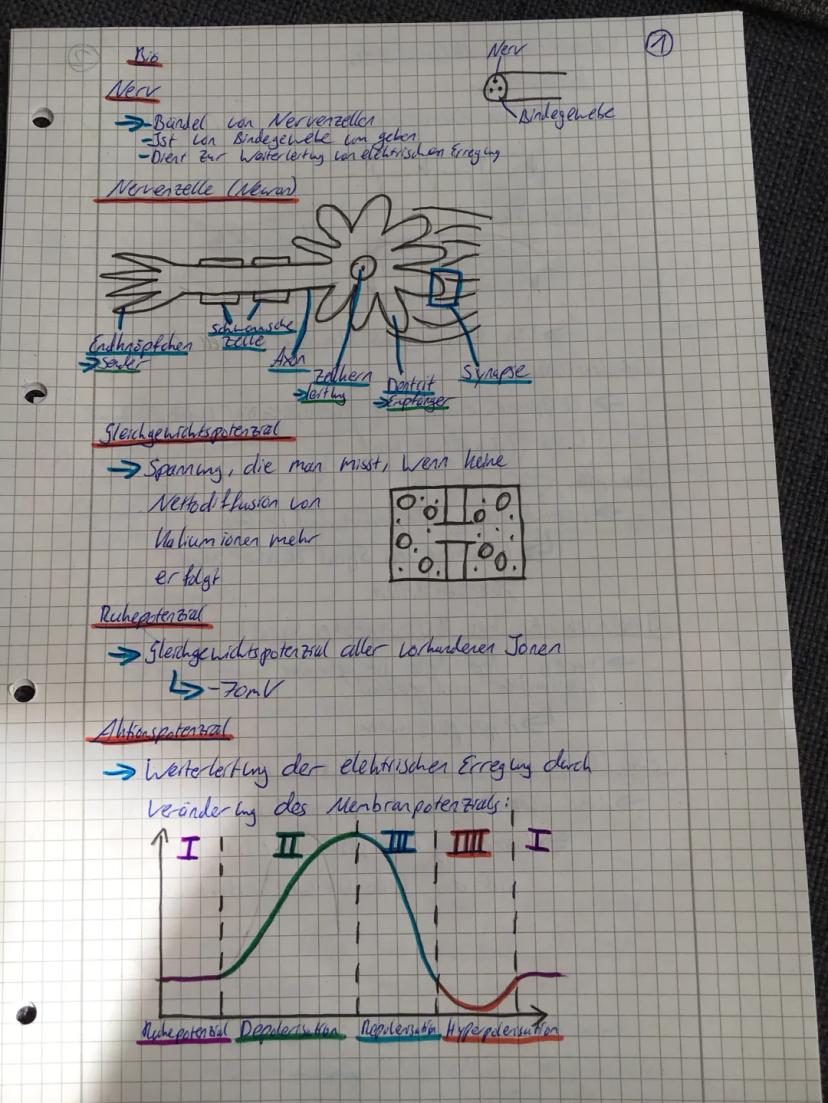 1
Bio
Nerv
Nerv
→-Bündel von Nervenzellen
-Ist von Bindegewebe um geben
-Dient zur Weiterleitung von elektrischen Erregung
Bindegewebe
Nervenzelle (Neuron)
Endknöpfchen
→Sender
Schwannsche
Zelle
Axon
Zellkern
→Leitung
Dentrit
→Empfänger
Synapse
Gleichgewichtspotenzial
→ Spannung, die man misst, wenn keine
Nettodiffusion von
Kaliumionen mehr
erfolgt
Ruhepotenzial
→ Gleichgewichtspotenzial aller vorhandenen Ionen
↳ -70mV
Aktionspotenzial
→ Weiterleitung der elektrischen Erregung durch
Veränderung des Membranpotenzials:
I II III IIII I
Ruhepotenzial Depolarisation Repolarisation Hyperpolarisation